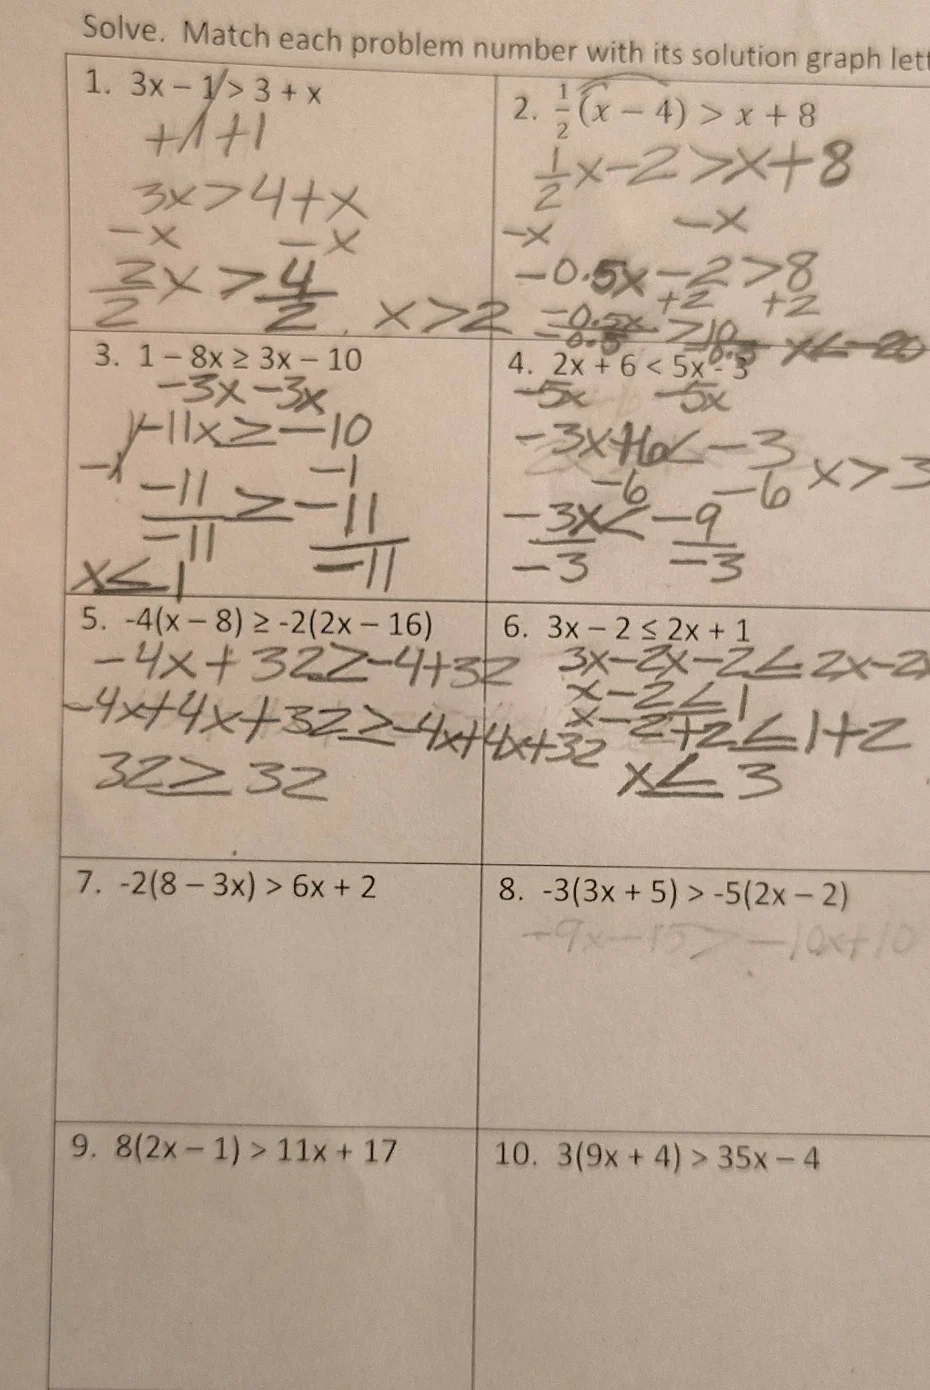 Solve. Match each problem number with its solution graph lett
1. 3x – 1 > 3 + x
+1 +1
3x > 4 + x
-x -x
2/2 x > 4/2 x > 2
2. 1/2 (x – 4) > x + 8
1/2 x - 2 > x + 8
-x -x
-0.5x - 2 > 8
+2 +2
-0.5x/-0.5 > 10/-0.5 x < -20
3. 1 – 8x ≥ 3x – 10
-3x -3x
1-11x ≥ -10
-1 -1
-11/-11 ≥ -11/-11
x ≤ 1
4. 2x + 6 < 5x - 3
-5x -5x
-3x+6 < -3
-6 -6 x > 3
-3x/-3 < -9/-3
5. -4(x – 8) ≥ -2(2x – 16)
-4x + 32 ≥ -4+32
-4x+4x+32 ≥ -4x+4x+32
32 ≥ 32
6. 3x – 2 ≤ 2x + 1
3x-2x-2 ≤ 2x-2
x-2 ≤ 1
x-2+2 ≤ 1+2
x ≤ 3
7. -2(8 – 3x) > 6x + 2
8. -3(3x + 5) > -5(2x – 2)
-9x-15 > -10x+10
9. 8(2x – 1) > 11x + 17
10. 3(9x + 4) > 35x – 4